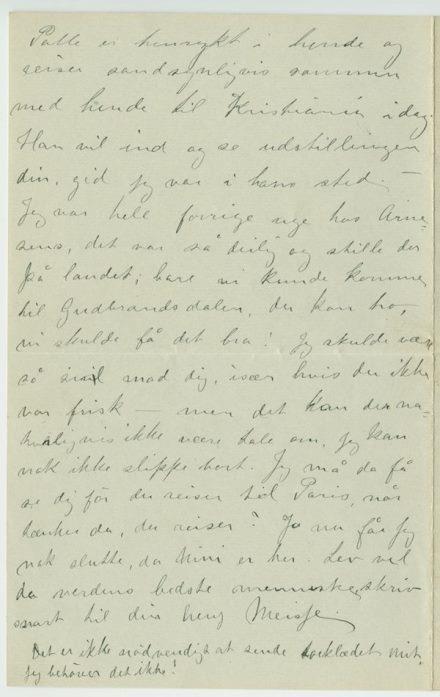 Palle er henrykt i hende og
reiser sandsynligvis sammen
med hende til Kristiania idag.
Han vil ind og se udstillingen
din, gid jeg var i hans sted. —
Jeg var hele forrige uge hos Arne-
sens, det var så deilig og stille der
på landet; bare vi kunde komme
til Gudbrandsdalen, du kan tro,
vi skulde få det bra! Jeg skulde være
så snil mod dig, især hvis du ikke
var frisk — men det kan der na-
turligvis ikke være tale om, jeg kan
nok ikke slippe bort. Jeg må da få
se dig før du reiser til Paris, når
tænker du, du reiser? Ja nu får jeg
nok slutte, da Mini er her. Lev vel
du verdens bedste menneske, skriv
snart til din heng
Det er ikke nødvendigt at sende mit,
jeg behøver det ikke!